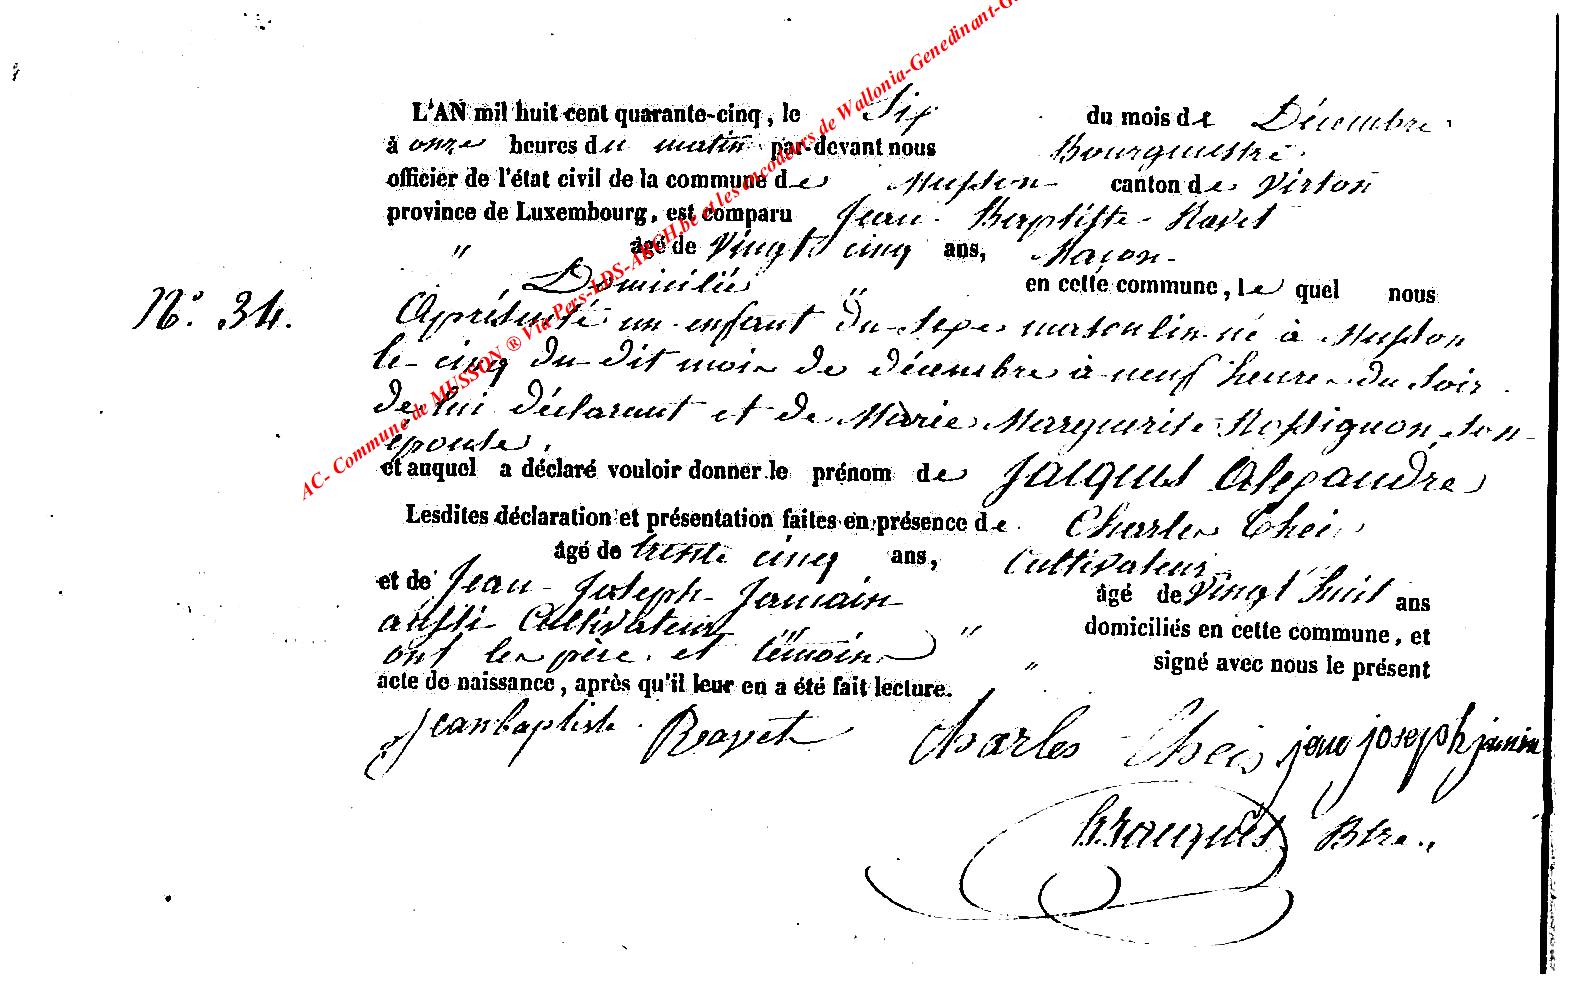 L'AN mil huit cent quarante-cinq, le Six du mois de Décembre
à onze heures du matin par-devant nous Bourgmestre
officier de l'état civil de la commune de Musson canton de Virton
province de Luxembourg, est comparu Jean Baptiste Ravet
" âgé de Vingt cinq ans, Maçon
Domicilié " en cette commune, le quel nous
N.° 34. a présenté un enfant du sexe masculin né à Musson
le cinq du dit mois de décembre à neuf heures du soir
de lui déclarant et de Marie Marguerite Rossignon son
épouse,
et auquel a déclaré vouloir donner le prénom de Jacques Alexandre
Lesdites déclaration et présentation faites en présence de Charles Theis
âgé de trente cinq ans, Cultivateur
et de Jean Joseph Jamain âgé de Vingt huit ans
aussi Cultivateur " " domiciliés en cette commune, et
ont les père et témoins " signé avec nous le présent
acte de naissance, après qu'il leur en a été fait lecture.
Jean baptiste Ravet Charles Theis jean joseph jamin
Btre
AC- Commune de MUSSON ® Via Pers-LDS-ARCH.be et les encodeurs de Wallonia-Genedinant-G